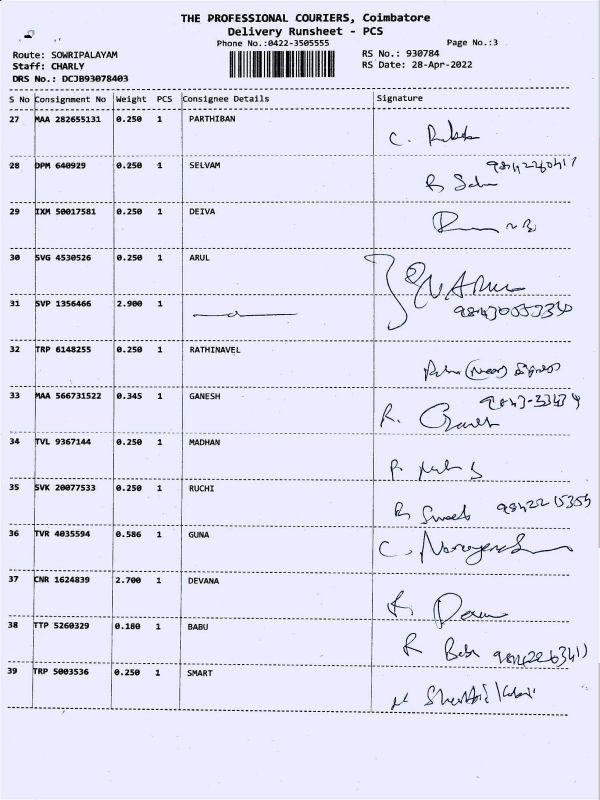 THE PROFESSIONAL COURIERS, Coimbatore
Delivery Runsheet - PCS
Phone No.:0422-3505555 Page No.:3
Route: SOWRIPALAYAM RS No.: 930784
Staff: CHARLY RS Date: 28-Apr-2022
DRS No.: DCJB93078403
S No Consignment No Weight PCS Consignee Details Signature
27 MAA 282655131 0.250 1 PARTHIBAN
C.
28 DPM 640929 0.250 1 SELVAM
29 IXM 50017581 0.250 1 DEIVA
30 SVG 4530526 0.250 1 ARUL
31 SVP 1356466 2.900 1
32 TRP 6148255 0.250 1 RATHINAVEL
33 MAA 566731522 0.345 1 GANESH
R.
34 TVL 9367144 0.250 1 MADHAN
35 SVK 20077533 0.250 1 RUCHI
Sweets 9842215355
36 TVR 4035594 0.586 1 GUNA
C.
37 CNR 1624839 2.700 1 DEVANA
38 TTP 5260329 0.180 1 BABU
R Babu
39 TRP 5003536 0.250 1 SMART